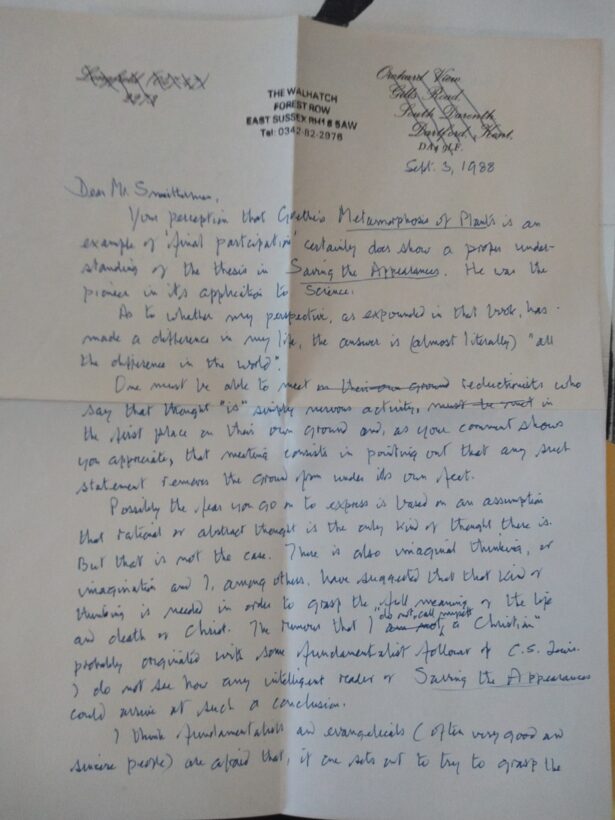 THE WALHATCH
FOREST ROW
EAST SUSSEX RH18 5AW
Tel: 0342-82-2976
Orchard View
Gills Road,
South Darenth
Dartford, Kent.
Sept. 3, 1988
Dear Mr
Your perception that Goethe's Metamorphosis of Plants is an
example of 'final participation' certainly does show a proper under-
standing of the thesis in Saving the Appearances. He was the
pioneer in its application to Science.
As to whether my perspective, as expounded in that book, has
made a difference in my life, the answer is (almost literally) "all
the difference in the world".
One must be able to meet on their own ground reductionists who
say that thought "is" simply nervous activity, must be met in
the first place on their own ground and, as your comment shows
you appreciate, that meeting consists in pointing out that any such
statement removes the ground from under its own feet.
Possibly the fear you go on to express is based on an assumption
that rational or abstract thought is the only kind of thought there is.
But that is not the case. There is also imaginal thinking, or
imagination and I, among others, have suggested that that kind of
thinking is needed in order to grasp the full meaning of the life
and death of Christ. The rumour that I do not call myself a Christian"
probably originated with some fundamentalist follower of C.S. Lewis.
I do not see how any intelligent reader of Saving the Appearances
could arrive at such a conclusion.
I think fundamentalists and evangelicals (often very good and
sincere people) are afraid that, if one sets out to try to grasp the